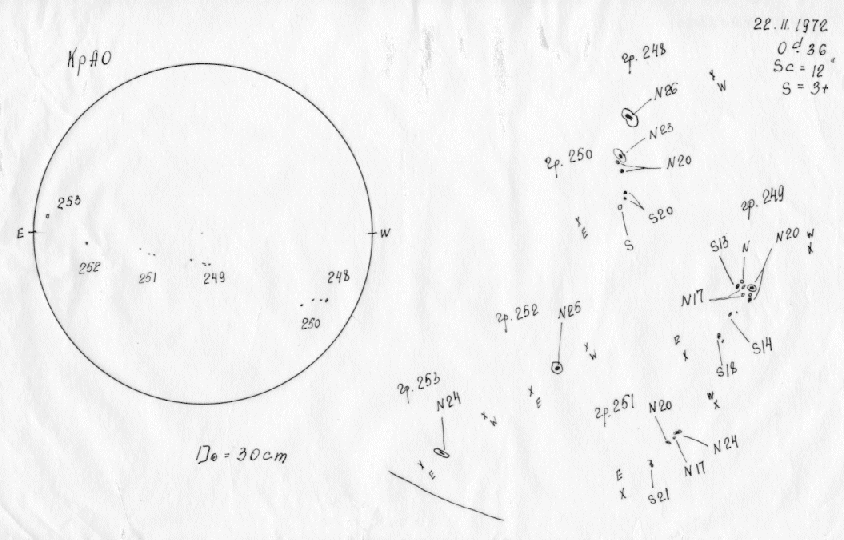 22.11.1972
0 d. 36
Sc = 12"
S = 3+
КрАО
гр. 248
W
N26
N23
гр. 250
N20
S20
E
S
гр. 249
S13
N
N20
W
N17
S14
E
S18
253
E
W
252
251
249
248
250
гр. 252
N25
W
E
гр. 253
N24
W
E
гр. 251
N20
W
N24
N17
E
S21
D⊙ = 30cm